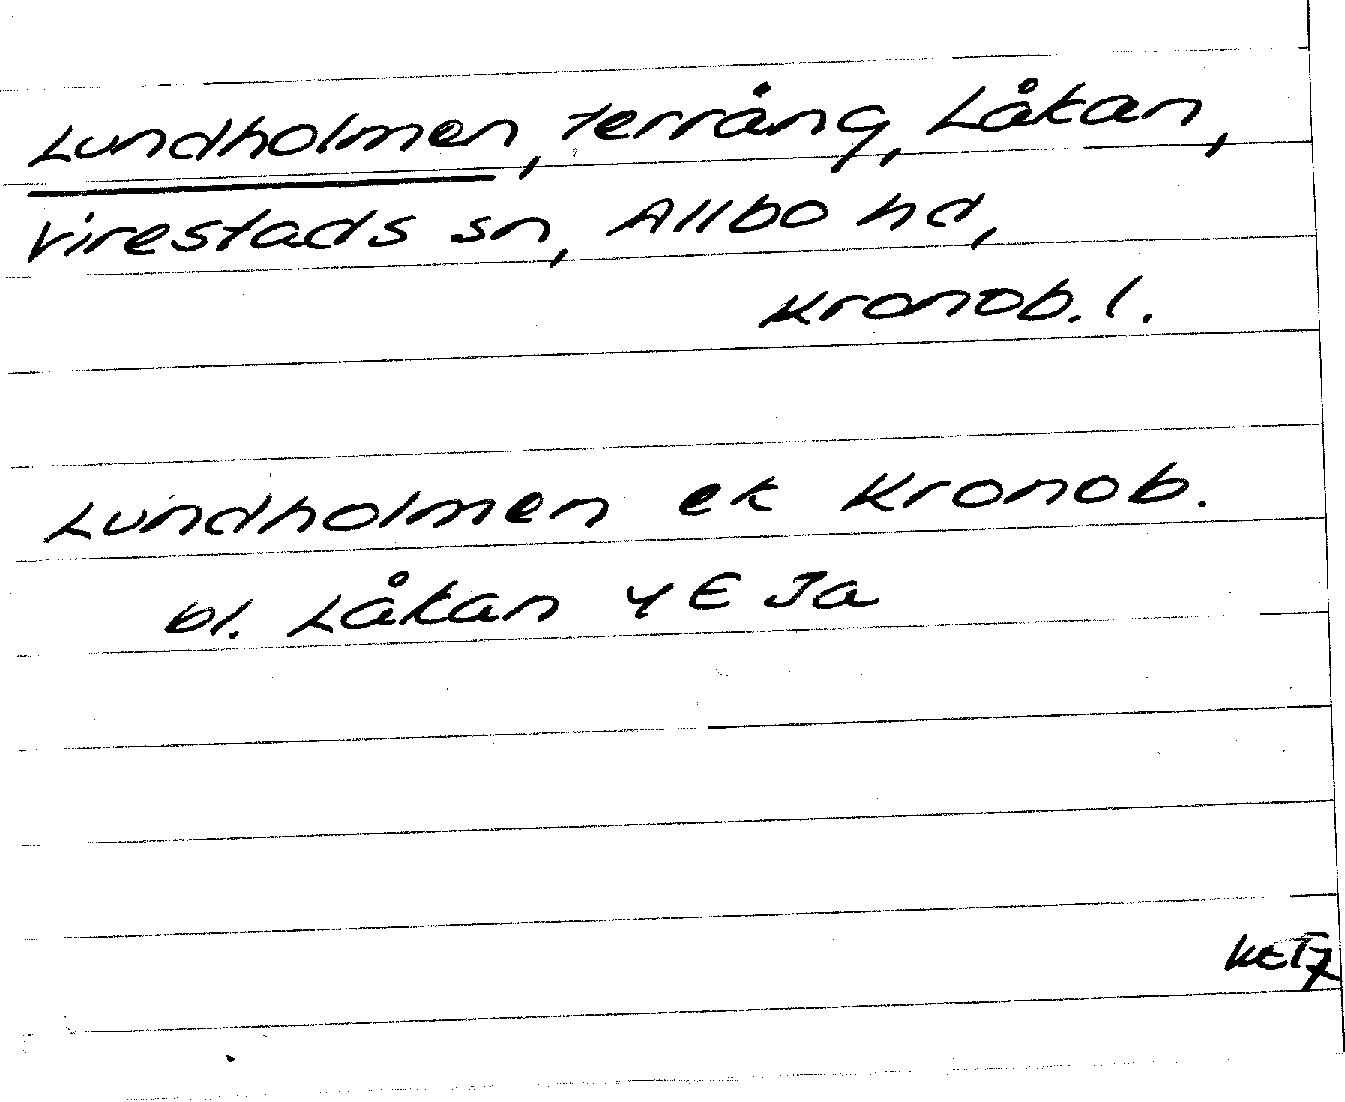 Lundholmen, terräng, Låkan,
Virestads sn, Allbo hd,
Kronob. l.
Lundholmen ek Kronob.
bl. Låkan 4 E Ja